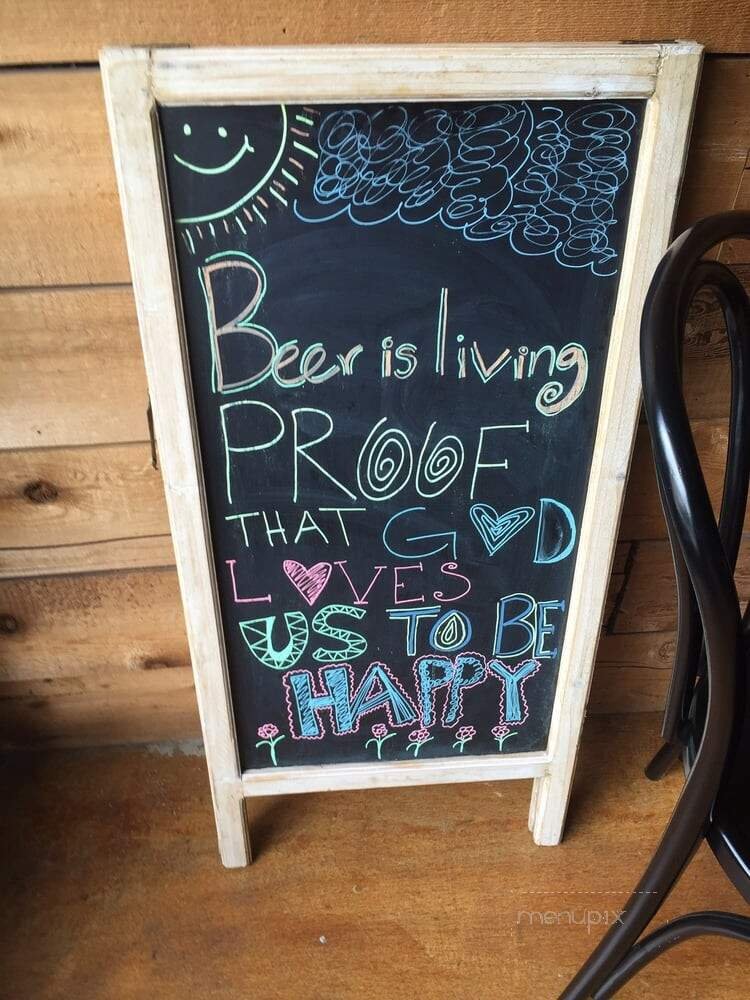 Beer is living
PROOF
THAT GOD
LOVES
US TO BE
HAPPY
menupix